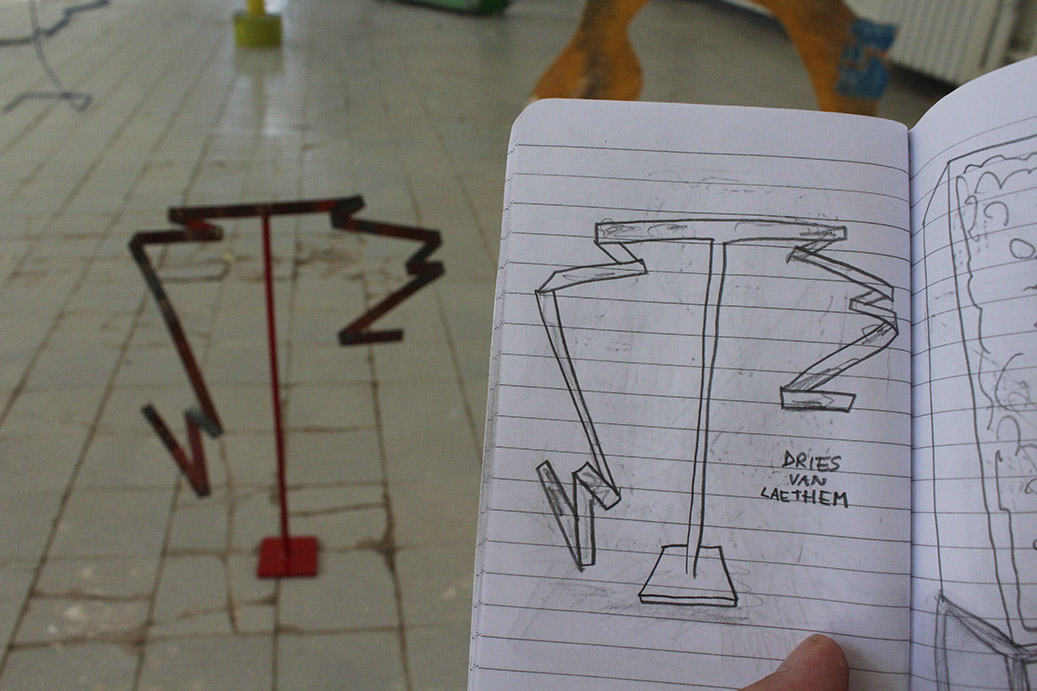 DRIES
VAN
LAETHEM